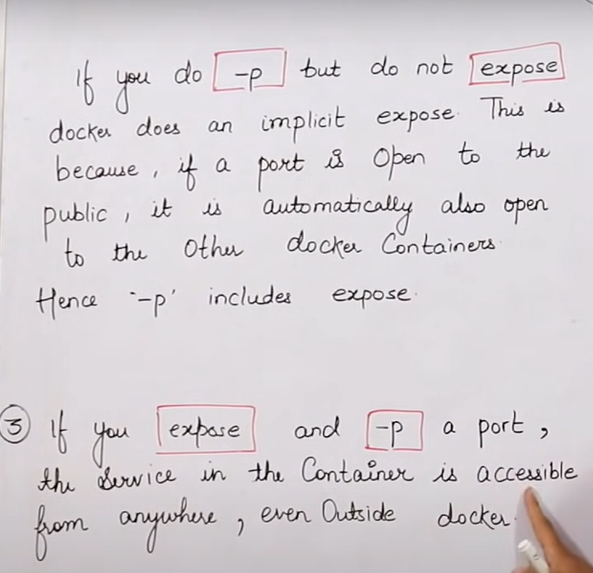 If you do -p but do not expose
docker does an implicit expose. This is
because, if a port is Open to the
public, it is automatically also open
to the Other docker Containers.
Hence '-p' includes expose.
③ If you expose and -p a port,
the Service in the Container is accessible
from anywhere, even Outside docker.